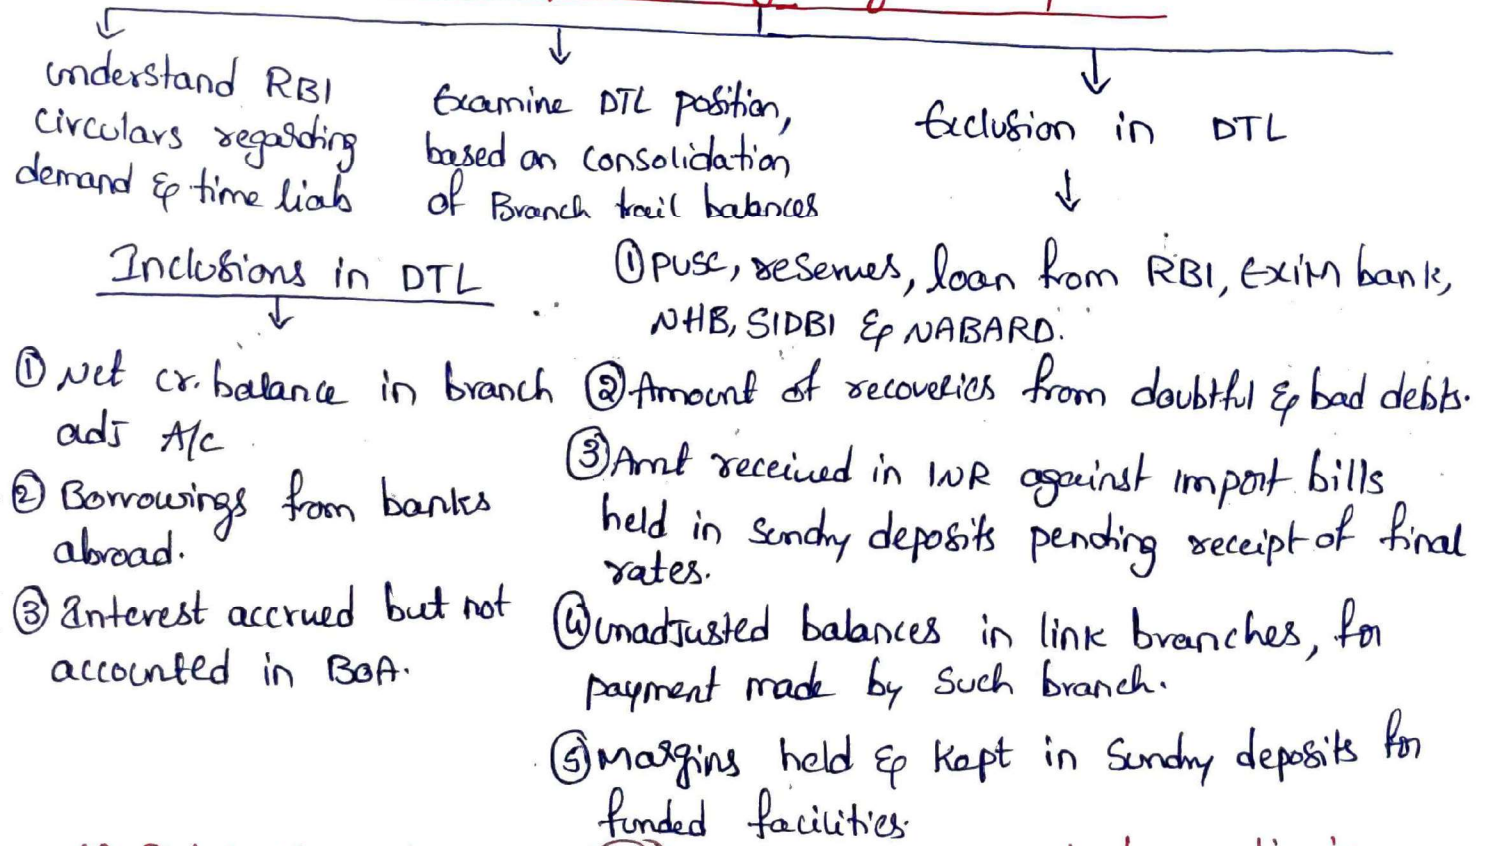 understand RBI
circulars regarding
demand & time liab
Examine DTL position,
based on consolidation
of Branch trail balances
Exclusion in DTL
Inclusions in DTL
① Net cr. balance in branch
adj A/c
② Borrowings from banks
abroad.
③ Interest accrued but not
accounted in BOA.
① PUSC, reserves, loan from RBI, Exim bank,
NHB, SIDBI & NABARD.
② Amount of recoveries from doubtful & bad debts.
③ Amt received in INR against import bills
held in sundry deposits pending receipt of final
rates.
④ unadjusted balances in link branches, for
payment made by such branch.
⑤ Margins held & kept in sundry deposits for
funded facilities.